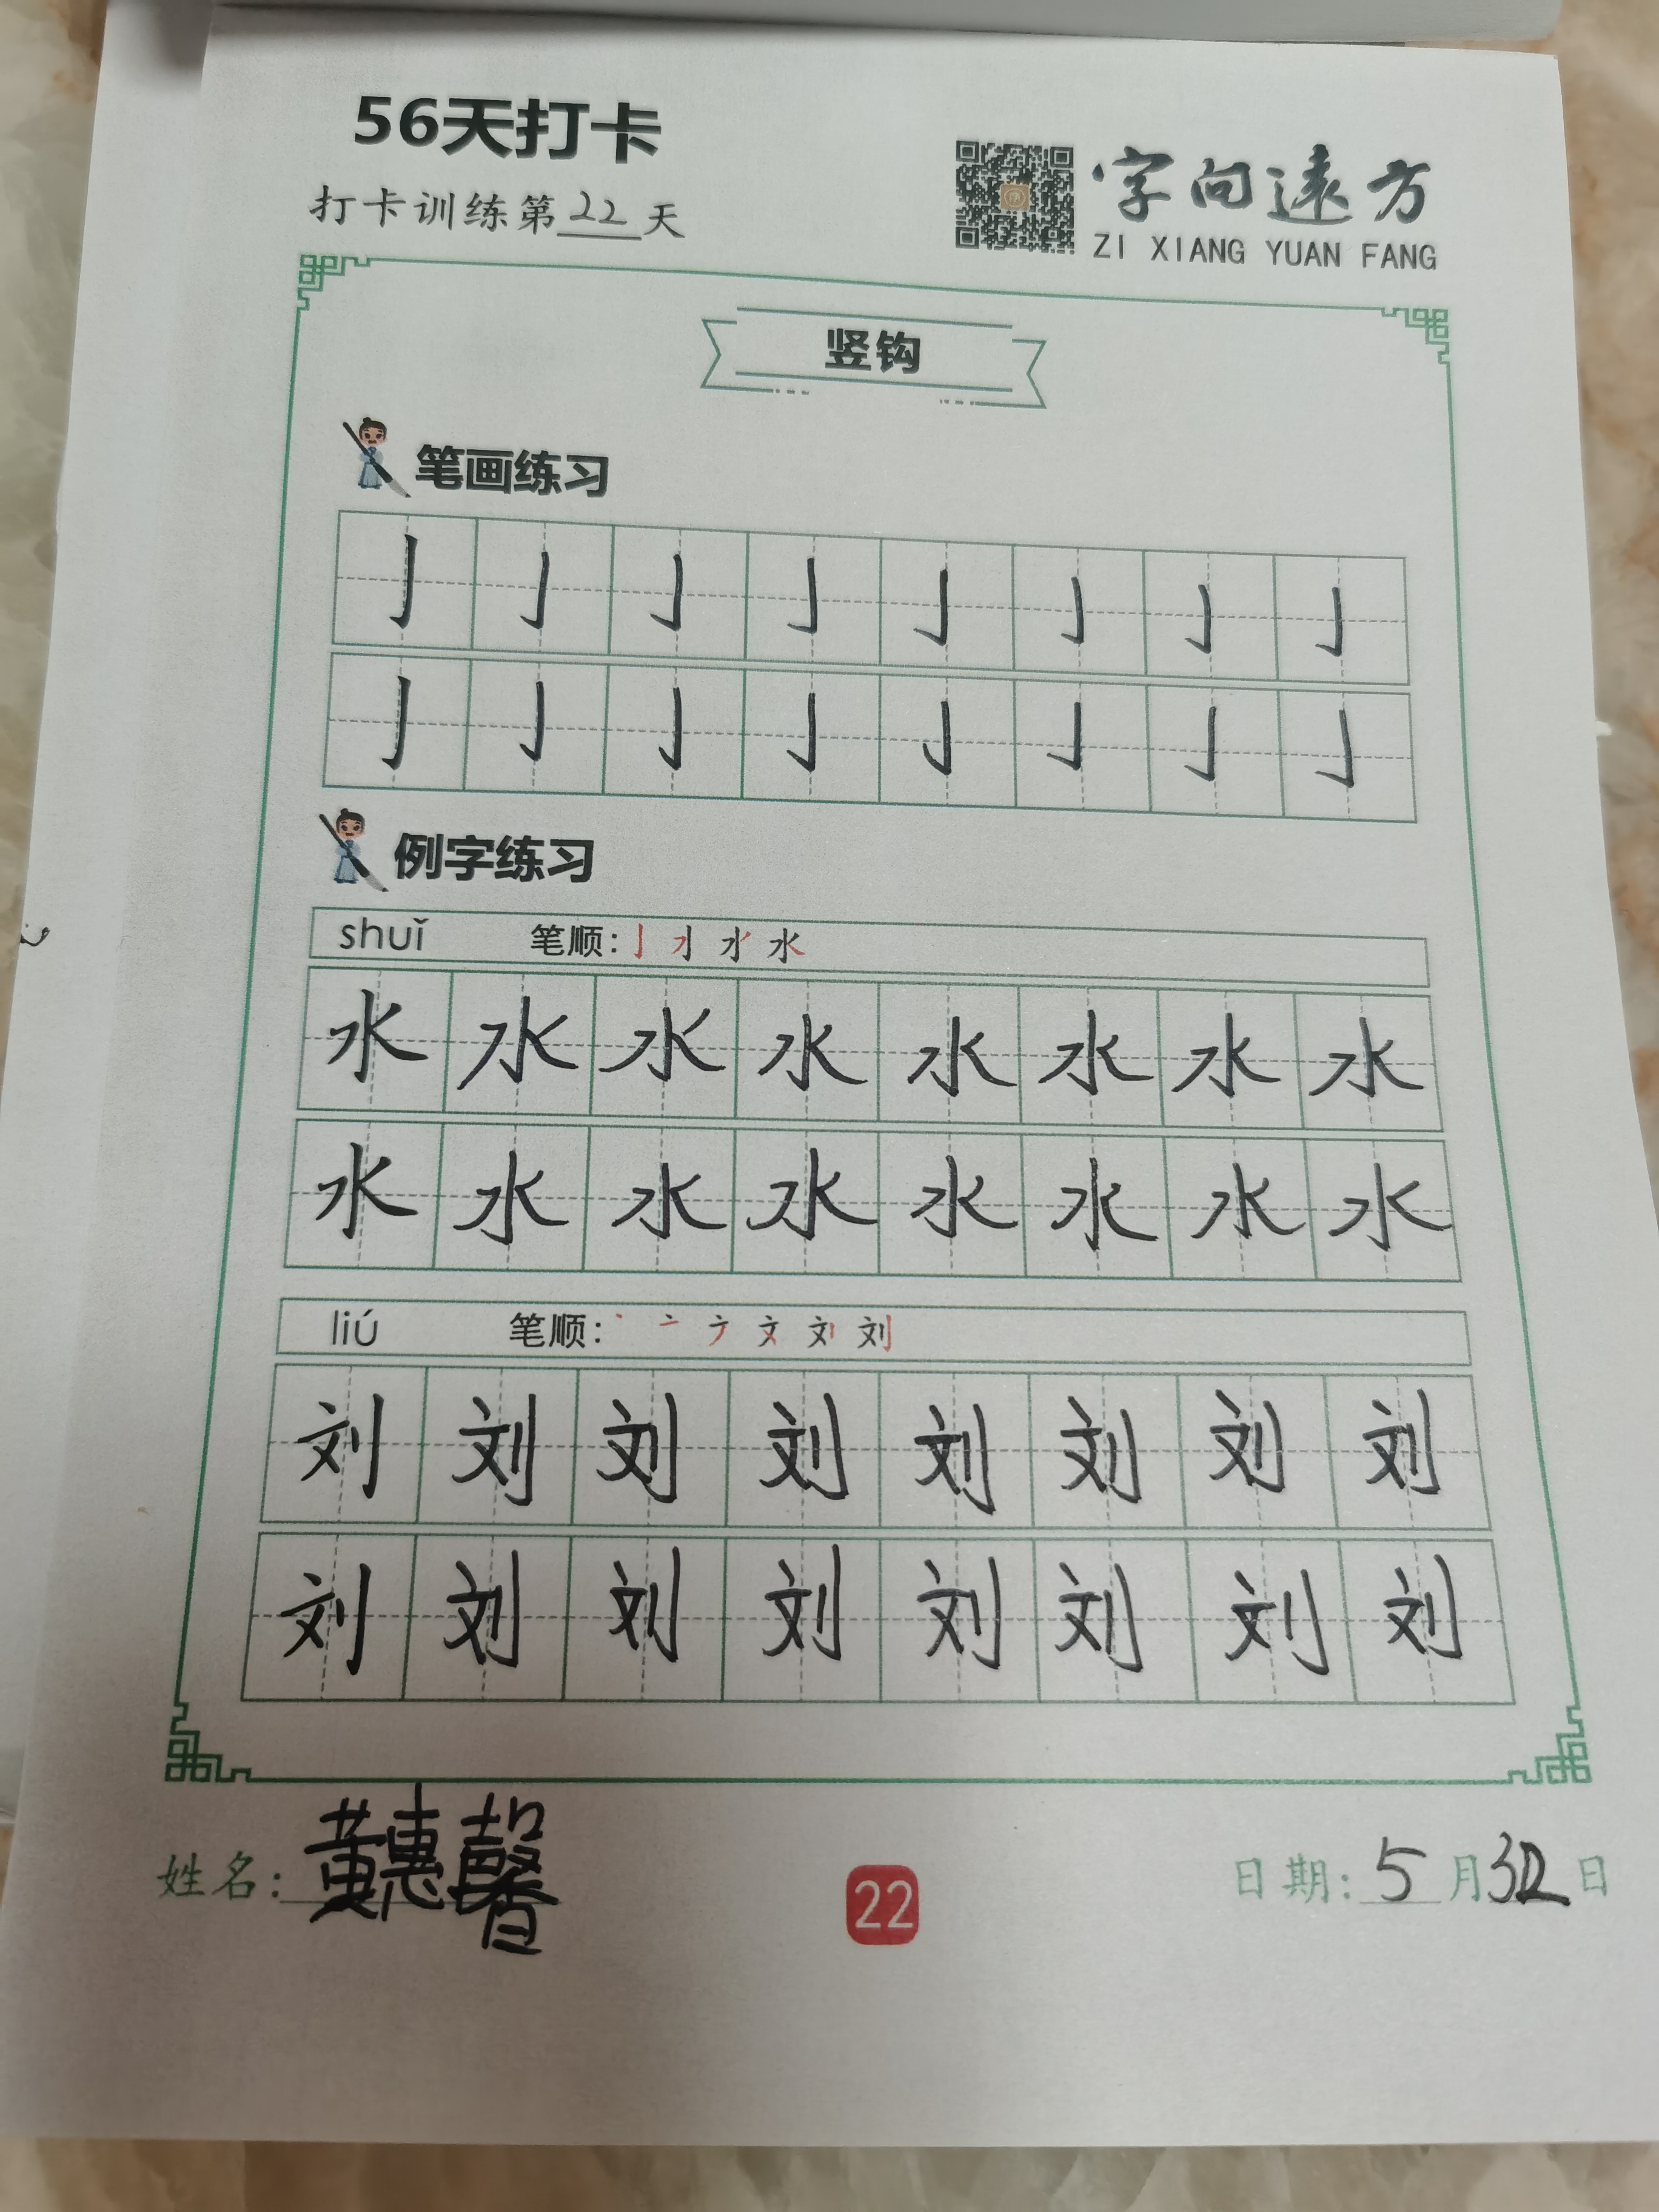 56天打卡
打卡训练第22天
字向遠方
ZI XIANG YUAN FANG
竖钩
笔画练习
亅亅亅亅亅亅亅亅
亅亅亅亅亅亅亅亅
例字练习
shuǐ 笔顺：
水
水水水水水水水水
水水水水水水水水
liú 笔顺：
刘
刘刘刘刘刘刘刘刘
刘刘刘刘刘刘刘刘
姓名：黄惠馨
22
日期：5月 日